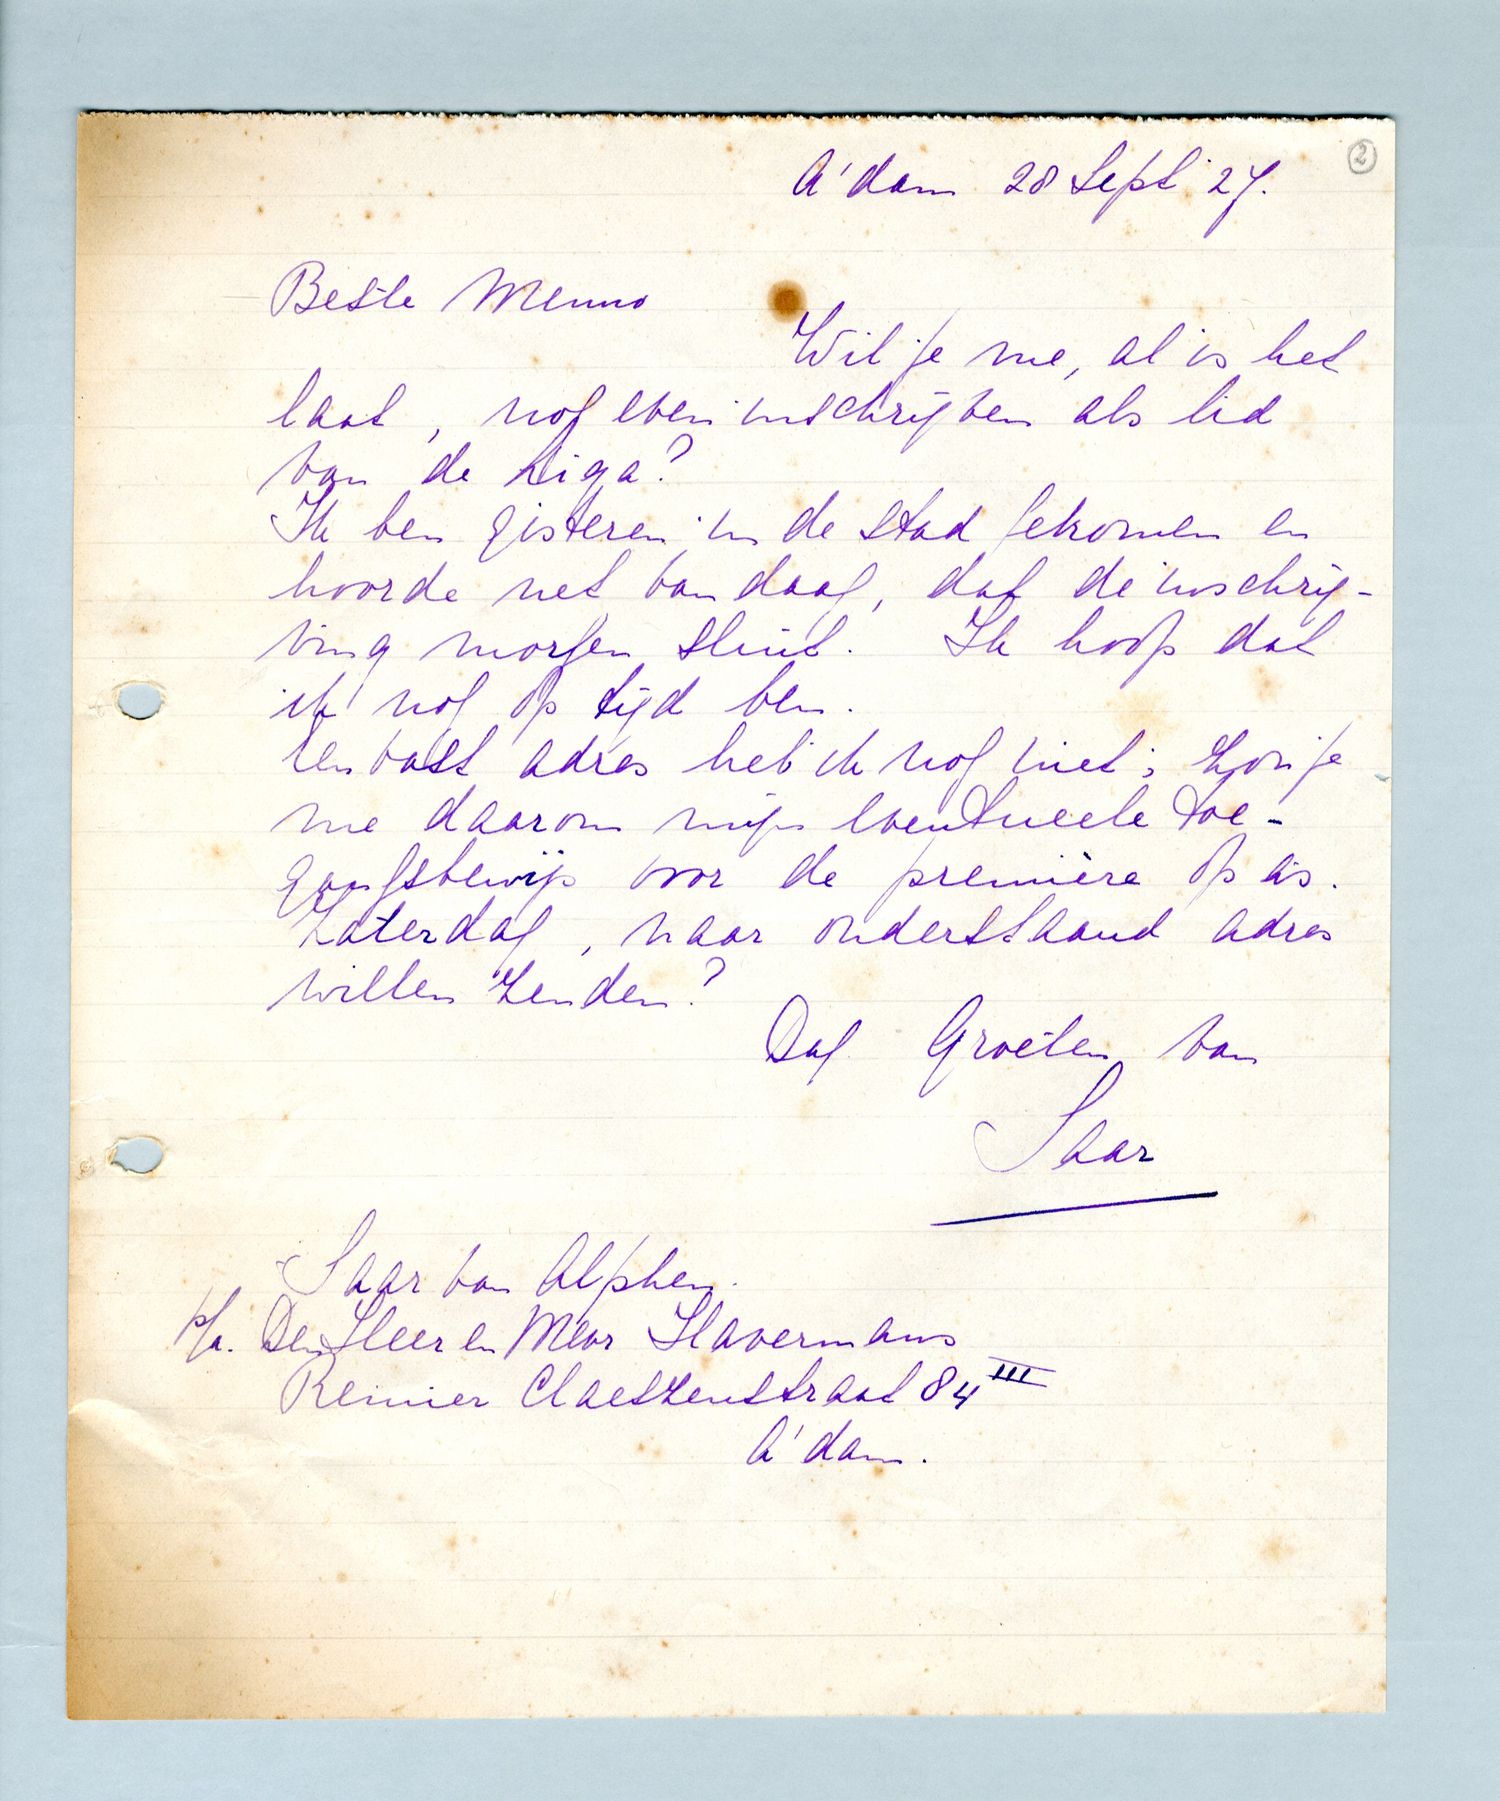 2
A'dam 28 Sept '27.
Beste Menno
Wil je me, al is het
laat, nog even inschrijven als lid
van de Liga?
Ik ben gisteren in de stad gekomen en
hoorde net vandaag, dat de inschrij-
ving morgen sluit. Ik hoop dat
ik nog op tijd ben.
Een vast adres heb ik nog niet; zou je
me daarom mijn eventueele toe-
gangsbewijs voor de première op a.s.
Zaterdag, naar onderstaand adres
willen zenden?
Dag Groeten van
Saar
Saar van Alphen.
p/a. Den Heer en Mevr Havermans
Reinier Claeszenstraat 84 III
A'dam.